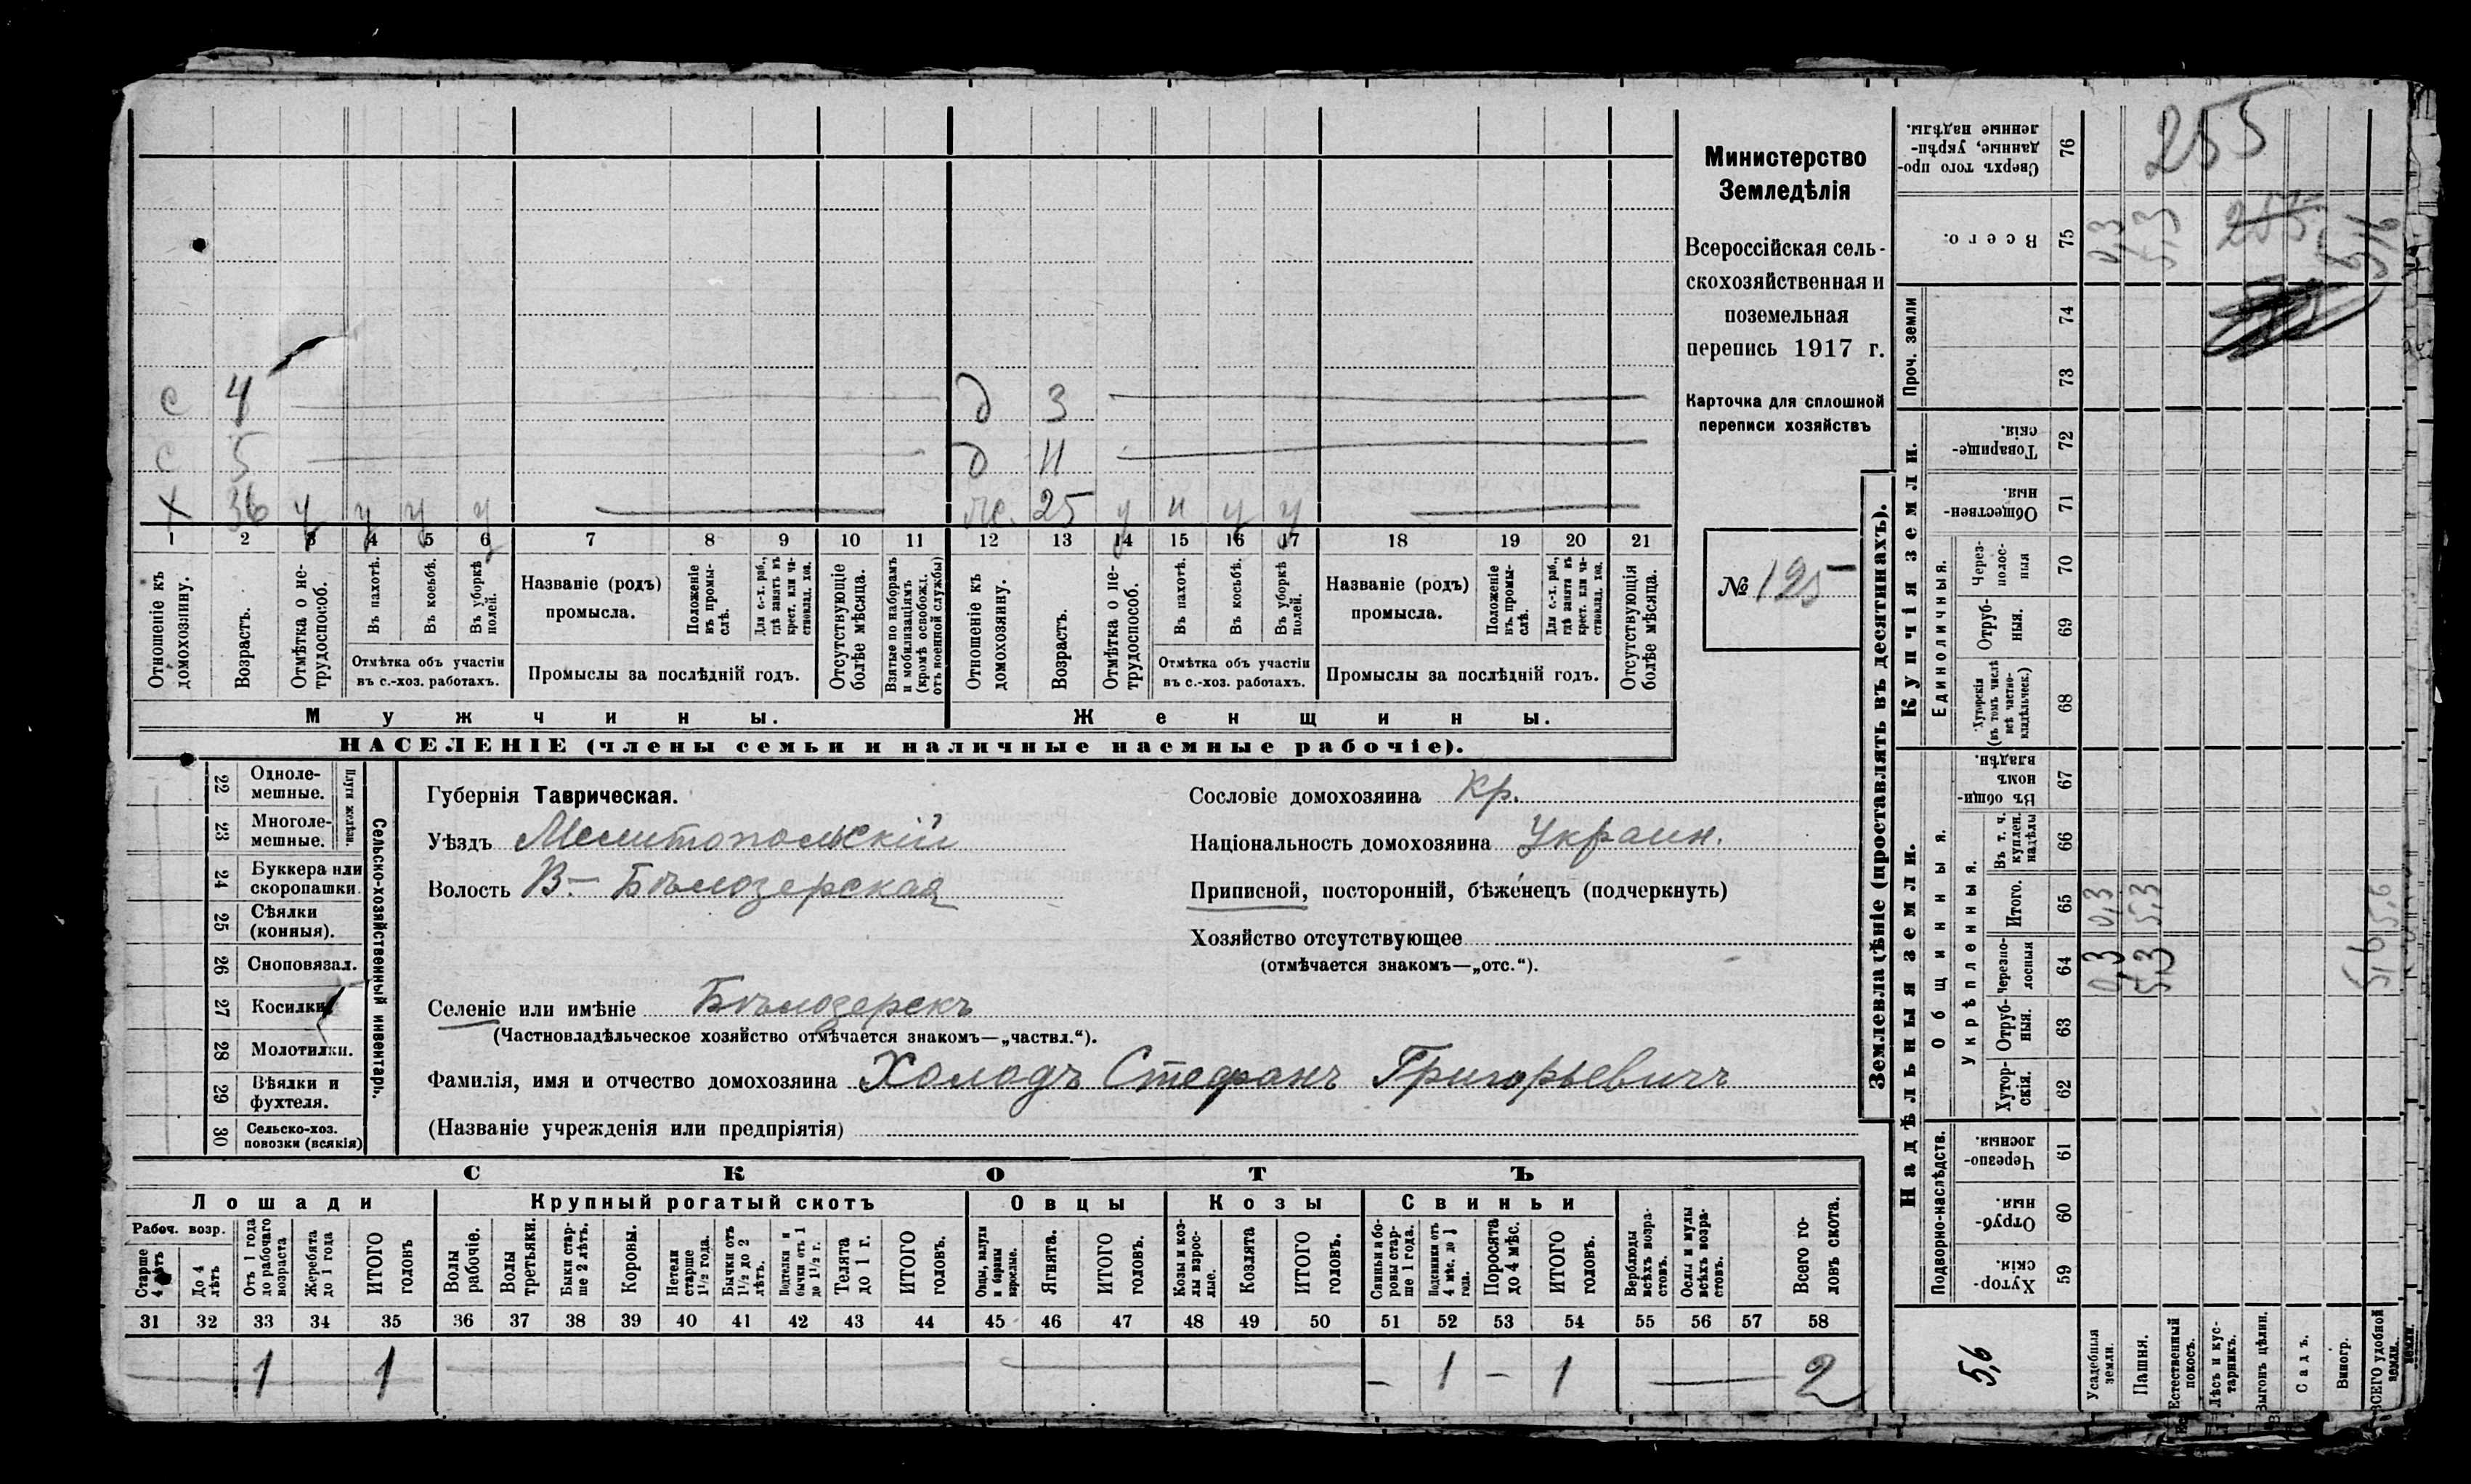 Министерство
Земледѣлія
Всероссійская сель-
скохозяйственная и
поземельная
перепись 1917 г.
Карточка для сплошной
переписи хозяйствъ
№ 125
с 4 д 3
с 5 д 11
х 36 у у у у ж. 25 у н у у
1 2 3 4 5 6 7 8 9 10 11 12 13 14 15 16 17 18 19 20 21
Отношеніе къ домохозяину.
Возрастъ.
Отмѣтка о не-трудоспособ.
Въ пахотѣ.
Въ косьбѣ.
Въ уборкѣ полей.
Отмѣтка объ участіи
въ с.-хоз. работахъ.
Названіе (родъ)
промысла.
Положеніе въ промы-слѣ.
Для с.-х. раб., гдѣ занятъ въ крест. или ча-стновлад. хоз.
Промыслы за послѣдній годъ.
Отсутствующіе болѣе мѣсяца.
Взятые по наборамъ и мобилизаціямъ (кромѣ освобожд. отъ военной службы)
Отношеніе къ домохозяину.
Возрастъ.
Отмѣтка о не-трудоспособ.
Въ пахотѣ.
Въ косьбѣ.
Въ уборкѣ полей.
Отмѣтка объ участіи
въ с.-хоз. работахъ.
Названіе (родъ)
промысла.
Положеніе въ промы-слѣ.
Для с.-х. раб., гдѣ занята въ крест. или ча-стновлад. хоз.
Промыслы за послѣдній годъ.
Отсутствующія болѣе мѣсяца.
Мужчины. Женщины.
НАСЕЛЕНІЕ (члены семьи и наличные наемные рабочіе).
22 Одноле-мешные.
23 Многоле-мешные.
Плуги желѣзн.
24 Буккера или скоропашки.
25 Сѣялки (конныя).
26 Сноповязал.
27 Косилки
28 Молотилки.
29 Вѣялки и фухтеля.
30 Сельско-хоз. повозки (всякія)
Сельско-хозяйственный инвентарь.
Губернія Таврическая.
Уѣздъ Мелитопольскій
Волость В-Бѣлозерская
Селеніе или имѣніе Бѣлозерскъ
(Частновладѣльческое хозяйство отмѣчается знакомъ—„частвл.“).
Фамилія, имя и отчество домохозяина Холодъ Стефанъ Григорьевичъ
(Названіе учрежденія или предпріятія)
Сословіе домохозяина Кр.
Національность домохозяина Украин.
Приписной, посторонній, бѣженецъ (подчеркнуть)
Хозяйство отсутствующее
(отмѣчается знакомъ—„отс.“).
СКОТЪ
Лошади Крупный рогатый скотъ Овцы Козы Свиньи
Рабоч. возр.
Старше 4 лѣтъ
До 4 лѣтъ
Отъ 1 года до рабочаго возраста
Жеребята до 1 года
ИТОГО головъ
Волы рабочіе.
Волы третьяки.
Быки стар-ше 2 лѣтъ.
Коровы.
Нетели старше 1½ года.
Бычки отъ 1½ до 2 лѣтъ.
Подтелки и бычки отъ 1 до 1½ г.
Телята до 1 г.
ИТОГО головъ.
Овцы, валухи и бараны взрослые.
Ягнята.
ИТОГО головъ.
Козы и коз-лы взрос-лые.
Козлята
ИТОГО головъ.
Свиньи и бо-ровы стар-ше 1 года.
Подсвинки отъ 4 мѣс. до 1 года.
Поросята до 4 мѣс.
ИТОГО головъ.
Верблюды всѣхъ возра-стовъ.
Ослы и мулы всѣхъ возра-стовъ.
Всего го-ловъ скота.
31 32 33 34 35 36 37 38 39 40 41 42 43 44 45 46 47 48 49 50 51 52 53 54 55 56 57 58
1 1 – 1 – 1 2
Землевладѣніе (проставлять въ десятинахъ).
Надѣльныя земли. Купчія земли. Проч. земли
Подворно-наслѣдств.
Общинныя.
Укрѣпленныя.
Единоличныя.
Хутор-скія. 59
Отруб-ныя. 60
Черезпо-лосныя. 61
Хутор-скія. 62
Отруб-ныя. 63
Черезпо-лосныя 64
Итого. 65
Въ т. ч. куплен. надѣлы 66
Въ общи-номъ владѣн. 67
Хуторскія (въ томъ числѣ всѣ частно-владѣльческ.) 68
Отруб-ныя. 69
Через-полос-ныя 70
Обществен-ныя. 71
Товарище-скія. 72
73
74
Всего. 75
Сверхъ того про-данные, укрѣп-ленные надѣлы. 76
5,6
Усадебныя земли. 0,3 0,3 0,3
Пашня. 5,3 5,3 5,3
Естественный покосъ.
Лѣсъ и кус-тарникъ.
Выгонъ цѣлин.
Садъ.
Виногр.
ВСЕГО удобной земли. 5,6 5,6 5,6
255
255